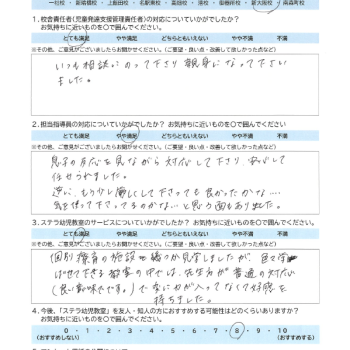 一社校 ・ 新瑞橋校 ・ 上飯田校 ・ 名駅東校 ・ 黒田校 ・ 池校 ・ 御器所校 ・ 新大阪校 ・ 南森町校
1. 校舎責任者(児童発達支援管理責任者)の対応についていかがでしたか?
お気持ちに近いものを〇で囲んでください。
とても満足 やや満足 どちらともいえない やや不満 不満
※その他、ご意見がございましたらお聞かせください。(ご要望・良い点・改善して欲しかった点など)
いつも相談にのって下さり 親身になって下さい
ました。
2. 担当指導員の対応についていかがでしたか? お気持ちに近いものを〇で囲んでください
とても満足 やや満足 どちらともいえない やや不満 不満
※その他、ご意見がございましたらお聞かせください。(ご要望・良い点・改善して欲しかった点など)
息子の反応を見ながら対応して下さり、安心して
任せられました。
逆に、もう少し厳しくして下さっても良かったかな…
気を使って下さってるのかな…と思う面もありました。
3. ステラ幼児教室のサービスについていかがでしたか? お気持ちに近いものを〇で囲んでください。
とても満足 やや満足 どちらともいえない やや不満 不満
※その他、ご意見がございましたらお聞かせください。(ご要望・良い点・改善して欲しかった点など)
個別療育の施設を幾つか見学しましたが、
教室の中では、先生方が普通の対応
(良い意味でです。)で変に力が入ってなくて好感を
持ちました。
4. 今後、「ステラ幼児教室」を友人・知人の方におすすめする可能性はどのくらいありますか?
お気持ちに近いものを〇で囲んでください。
0 ・ 1 ・ 2 ・ 3 ・ 4 ・ 5 ・ 6 ・ 7 ・ 8 ・ 9 ・ 10
(おすすめしない) (おすすめする)